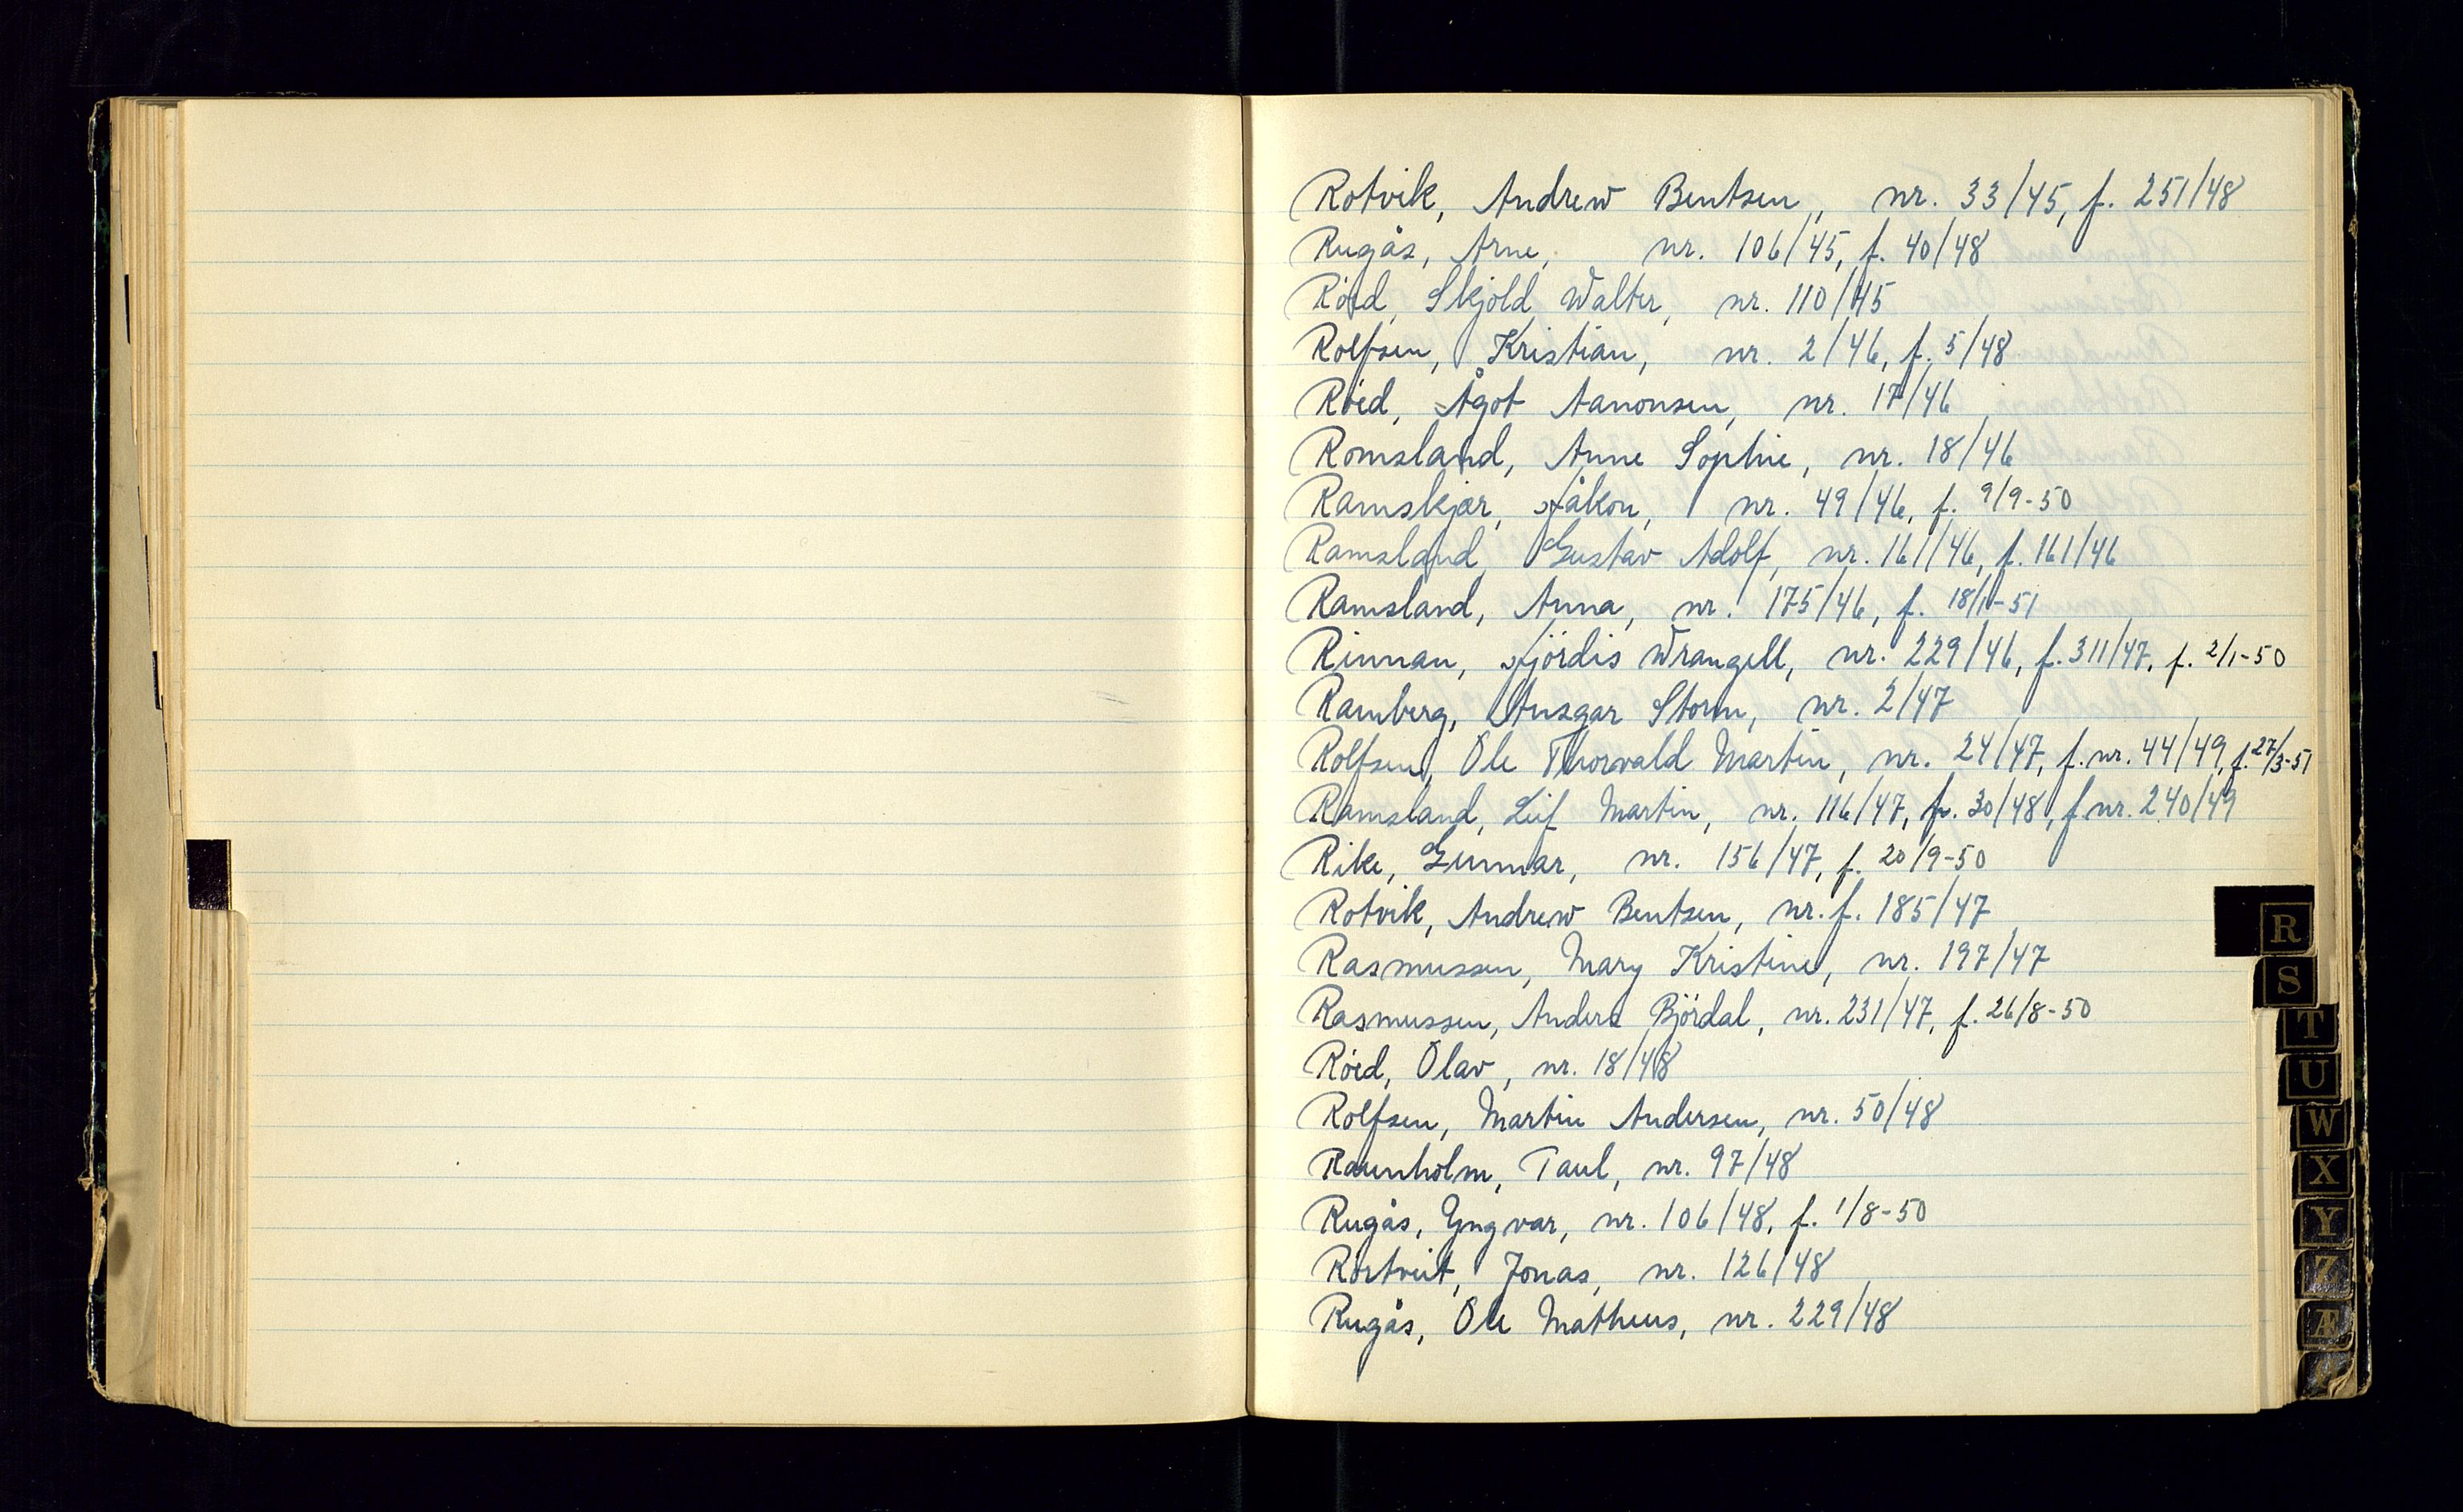 Rotvik, Andrew Bentsen, nr. 33/45, f. 251/48
Rugås, Arne, nr. 106/45, f. 40/48
Röed, Skjold Walter, nr. 110/45
Rolfsen, Kristian, nr. 2/46, f. 5/48
Röed, Ågot Aanonsen, nr. 17/46
Romsland, Anne Sophie, nr. 18/46
Ramskjær, Håkon, nr. 49/46, f. 9/9-50
Ramsland, Gustav Adolf, nr. 161/46, f. 161/46
Ramsland, Anna, nr. 175/46, f. 18/1-51
Rinnan, Hjördis Wrangell, nr. 229/46, f. 311/47, f. 2/1-50
Ramberg, Ansgar Storm, nr. 2/47
Rolfsen, Ole Thorvald Martin, nr. 24/47, f. nr. 44/49, f. 27/3-51
Ramsland, Leif Martin, nr. 116/47, f. 30/48, f nr. 240/49
Rike, Gunnar, nr. 156/47, f. 20/9-50
Rotvik, Andrew Bentsen, nr. f. 185/47
Rasmussen, Mary Kristine, nr. 197/47
Rasmussen, Anders Björdal, nr. 231/47, f. 26/8-50
Röed, Olav, nr. 18/48
Rolfsen, Martin Andersen, nr. 50/48
Raunholm, Paul, nr. 97/48
Rugås, Yngvar, nr. 106/48, f. 1/8-50
Rörtveit, Jonas, nr. 126/48
Rugås, Ole Matheus, nr. 229/48
R
S
T
U
W
X
Y
Z
Æ